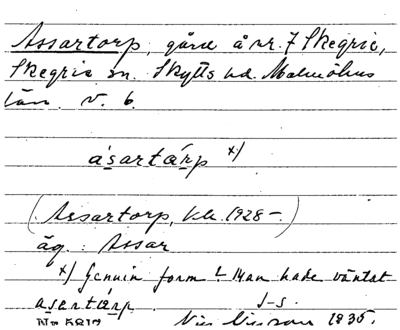 Assartorp, gård å nr. 7 Skegrie,
Skegrie sn. Skytts hd. Malmöhus
län. V. 6.
asartarp x)
(Assartorp, kk. 1928–.)
äg.: Assar
x) Genuin form? Man hade väntat
asartarp. J-s.
No 5817 Nils 1935.